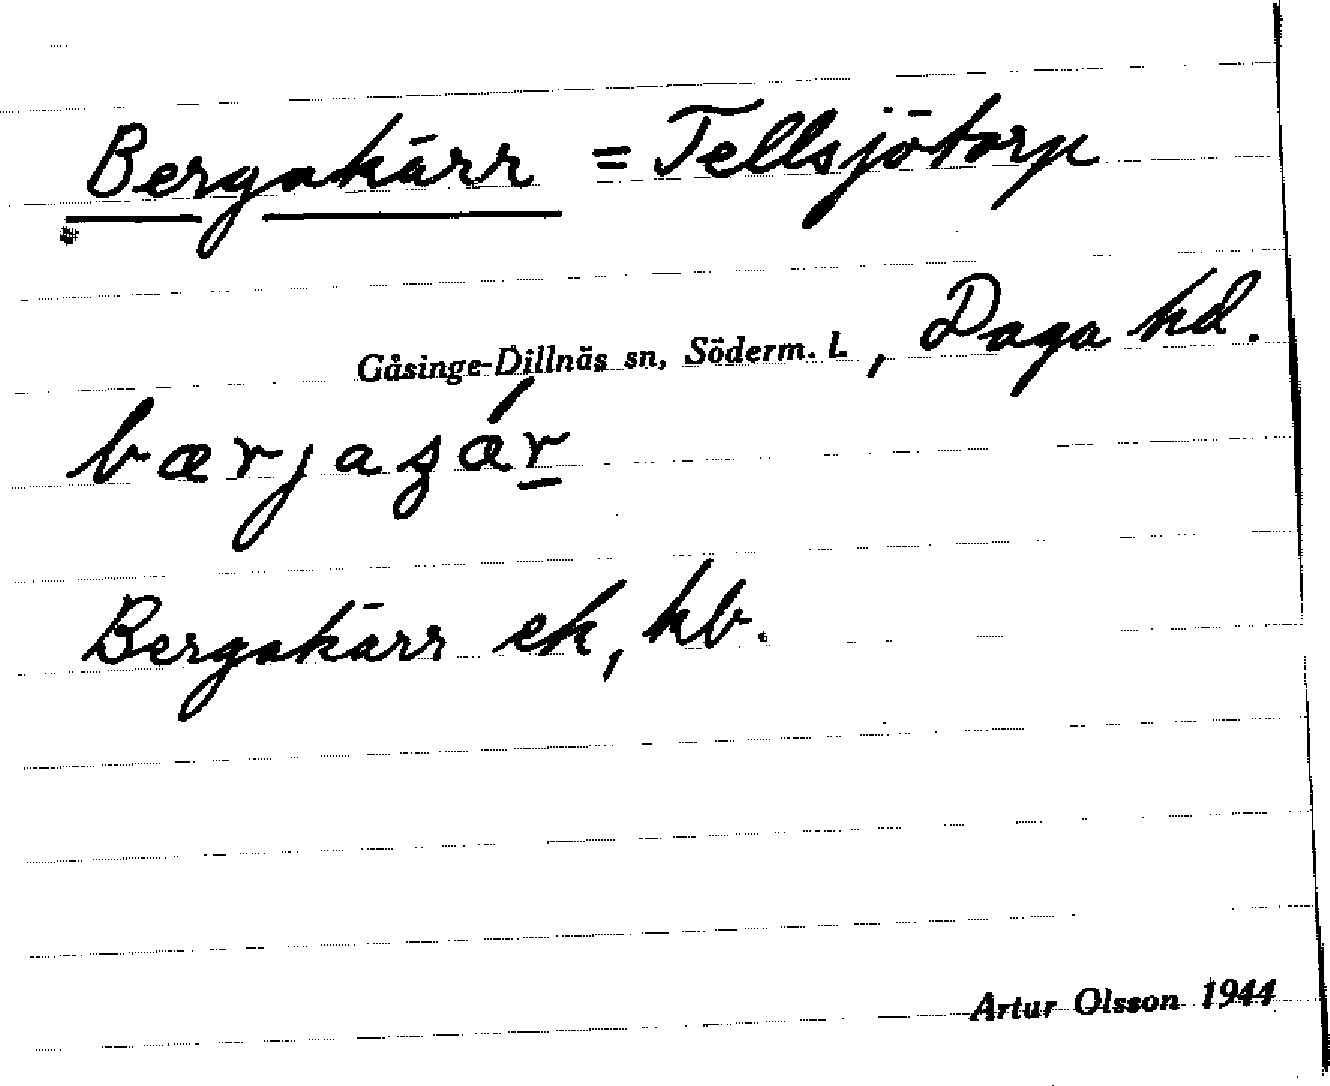 Bergakärr = Tellsjötorp
Gåsinge-Dillnäs sn, Söderm. L, Daga hd.
bærjaʂǽr̲
Bergakärr ek, kb.
Artur Olsson 1944